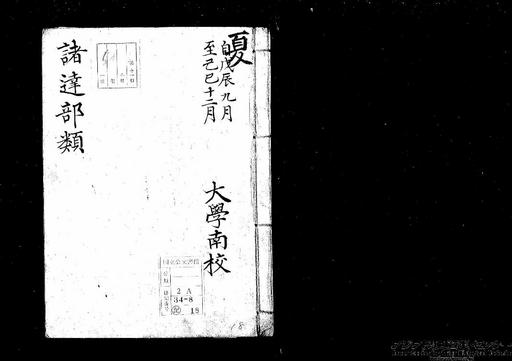 夏
自戊辰九月
至己巳十二月
大學南校
諸達部類
国立公文書館
2 A
34-8
18
18